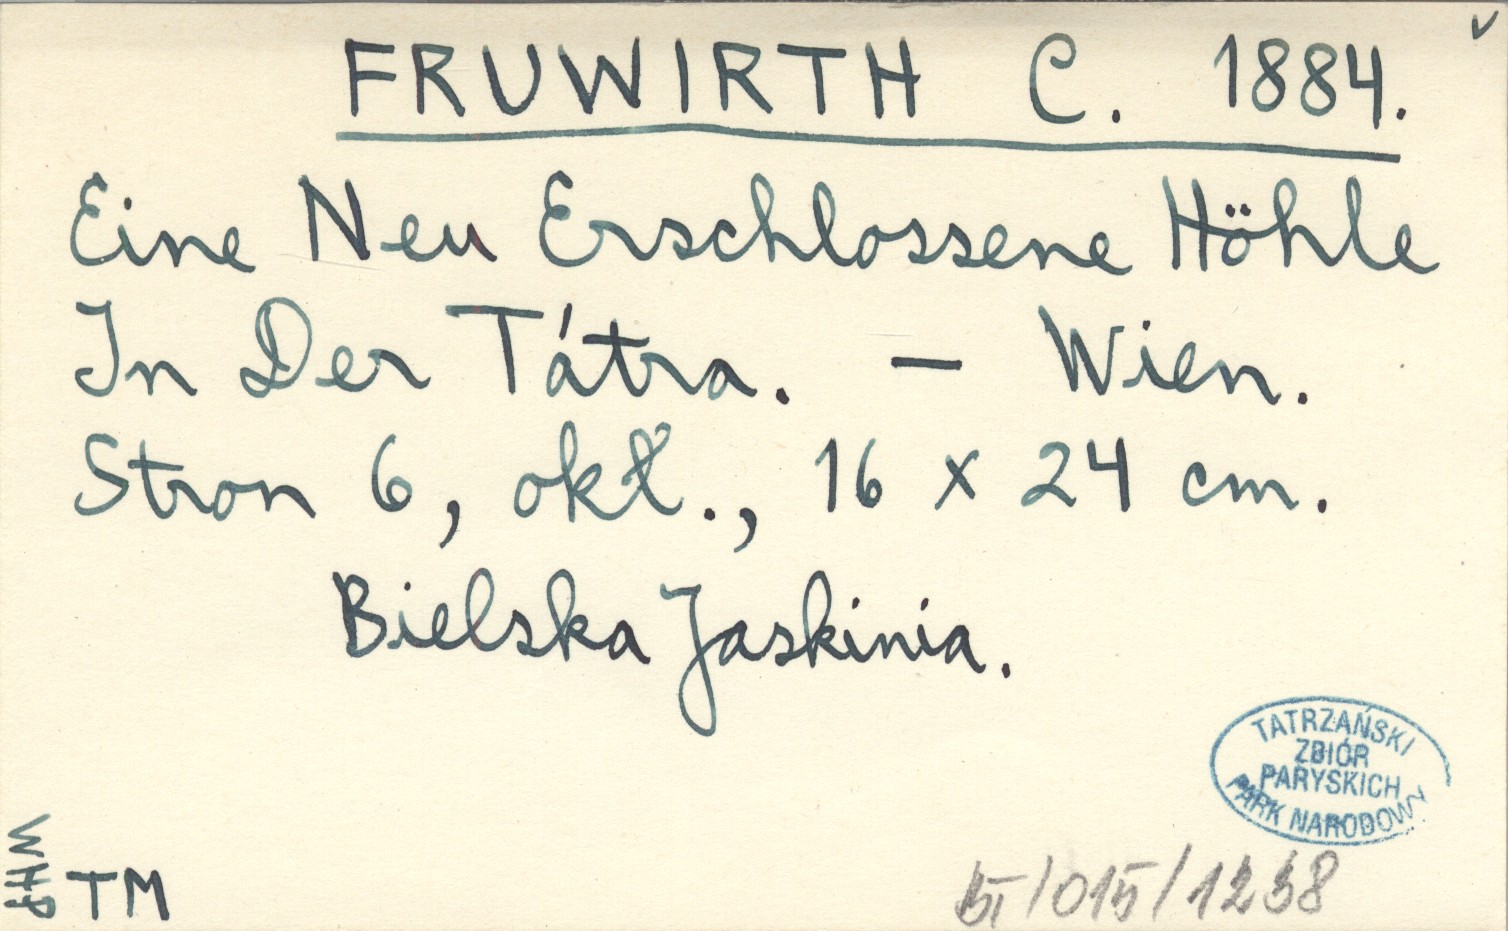 FRUWIRTH C. 1884.
Eine Neu Erschlossene Höhle
In Der Tátra. — Wien.
Stron 6, okł., 16 x 24 cm.
Bielska Jaskinia.
TATRZAŃSKI
ZBIÓR
PARYSKICH
PARK NARODOWY
WHP
TM
/015/1238